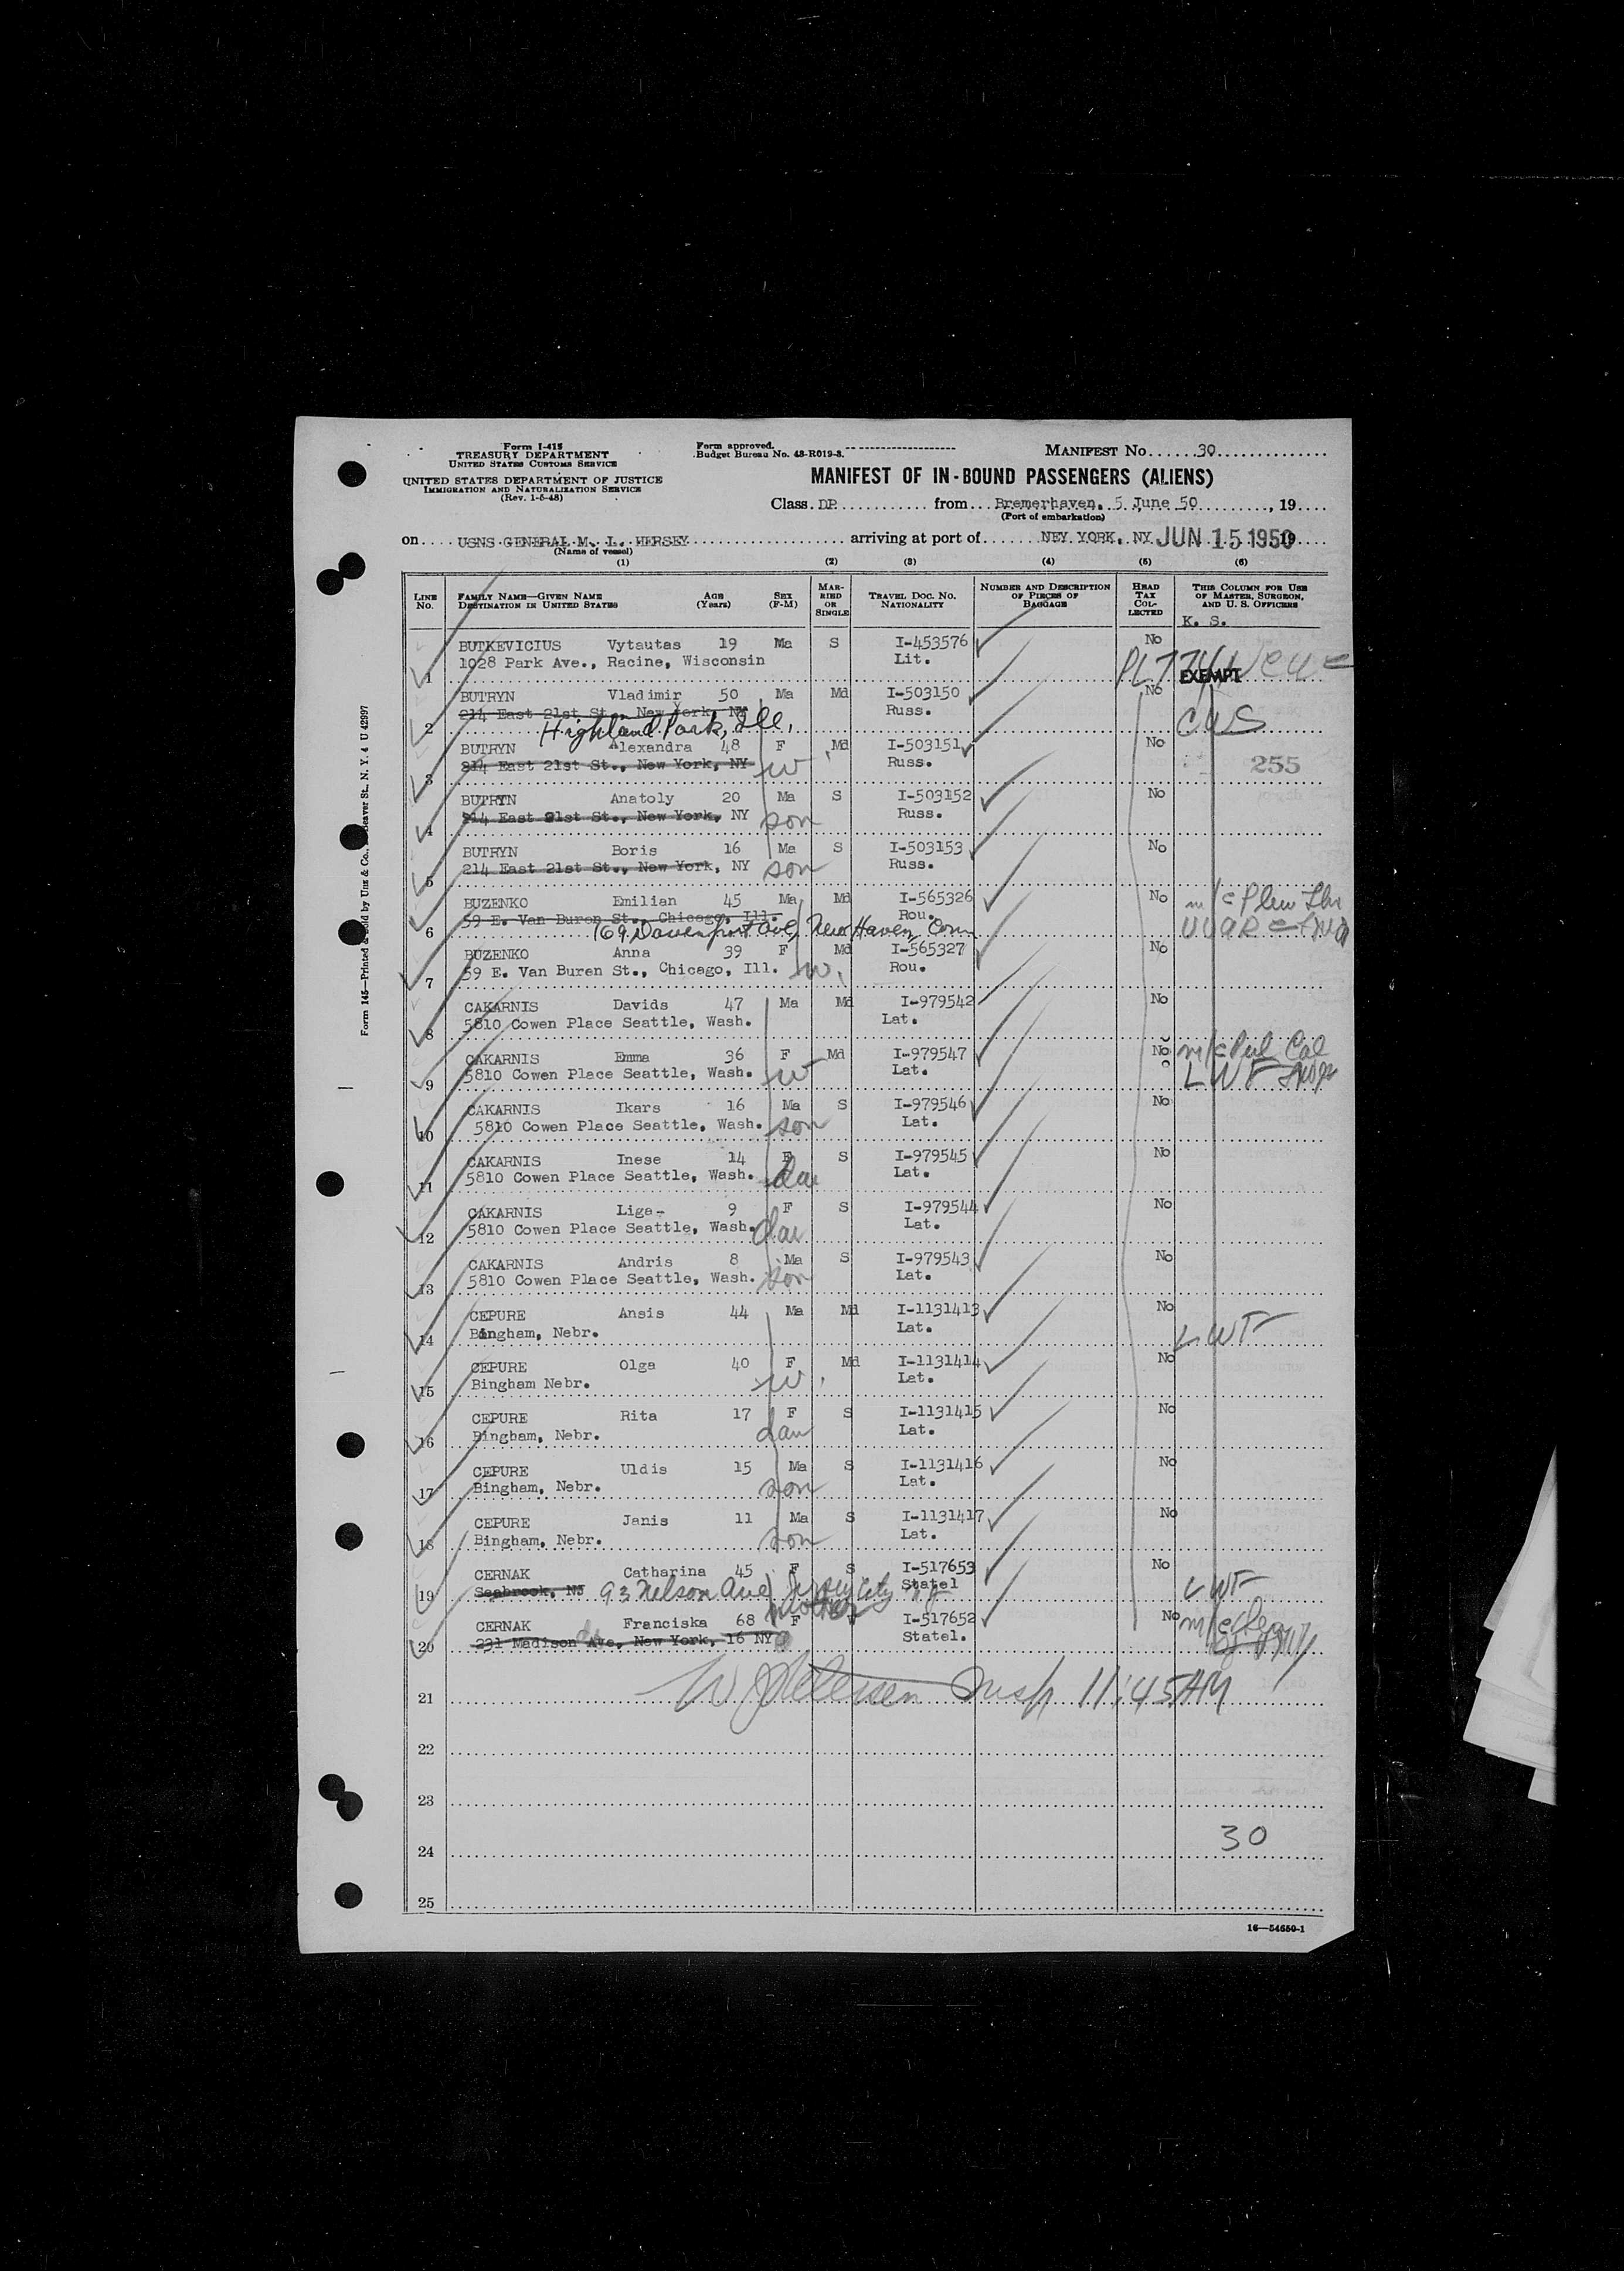 Form I-415
TREASURY DEPARTMENT
UNITED STATES CUSTOMS SERVICE
UNITED STATES DEPARTMENT OF JUSTICE
IMMIGRATION AND NATURALIZATION SERVICE
(Rev. 1-5-48)
Form approved.
Budget Bureau No. 43-R019-3.
MANIFEST No. 30
MANIFEST OF IN-BOUND PASSENGERS (ALIENS)
Class DP from Bremerhaven, 5 June 50, 19
(Port of embarkation)
on USNS GENERAL M. L. HERSEY arriving at port of NEY YORK, NY JUN 15 1950 19
(Name of vessel)
(1) (2) (3) (4) (5) (6)
LINE No. FAMILY NAME—GIVEN NAME DESTINATION IN UNITED STATES AGE (Years) SEX (F-M) MARRIED OR SINGLE TRAVEL DOC. NO. NATIONALITY NUMBER AND DESCRIPTION OF PIECES OF BAGGAGE HEAD TAX COLLECTED THIS COLUMN FOR USE OF MASTER, SURGEON, AND U. S. OFFICERS
K. S.
BUTKEVICIUS Vytautas 19 Ma S I-453576 No
1028 Park Ave., Racine, Wisconsin Lit.
1 PL774 EXEMPT
BUTRYN Vladimir 50 Ma Md I-503150 No
214 East 21st St., New York, NY Russ.
2 Highland Park, Ill. CWS
BUTRYN Alexandra 48 F Md I-503151 No
214 East 21st St., New York, NY w Russ. 255
3
BUTRYN Anatoly 20 Ma S I-503152 No
214 East 21st St., New York, NY son Russ.
4
BUTRYN Boris 16 Ma S I-503153 No
214 East 21st St., New York, NY son Russ.
5
BUZENKO Emilian 45 Ma Md I-565326 No
59 E. Van Buren St., Chicago, Ill. Rou.
6 169 Davenport Ave, New Haven, Conn
BUZENKO Anna 39 F Md I-565327 No
59 E. Van Buren St., Chicago, Ill. w. Rou.
7
CAKARNIS Davids 47 Ma Md I-979542 No
5810 Cowen Place Seattle, Wash. Lat.
8
CAKARNIS Emma 36 F Md I-979547 No
5810 Cowen Place Seattle, Wash. w Lat. LWF
9
CAKARNIS Ikars 16 Ma S I-979546 No
5810 Cowen Place Seattle, Wash. son Lat.
10
CAKARNIS Inese 14 F S I-979545 No
5810 Cowen Place Seattle, Wash. dau Lat.
11
CAKARNIS Liga- 9 F S I-979544 No
5810 Cowen Place Seattle, Wash. dau Lat.
12
CAKARNIS Andris 8 Ma S I-979543 No
5810 Cowen Place Seattle, Wash. son Lat.
13
CEPURE Ansis 44 Ma Md I-1131413 No
Bingham, Nebr. Lat. LWF
14
CEPURE Olga 40 F Md I-1131414 No
Bingham Nebr. w. Lat.
15
CEPURE Rita 17 F S I-1131415 No
Bingham, Nebr. dau Lat.
16
CEPURE Uldis 15 Ma S I-1131416 No
Bingham, Nebr. son Lat.
17
CEPURE Janis 11 Ma S I-1131417 No
Bingham, Nebr. son Lat.
18
CERNAK Catharina 45 F S I-517653 No
Seabrook, NJ 93 Nelson Ave, Jersey City NJ Statel LWF
19 mother
CERNAK Franciska 68 F I-517652 No
231 Madison Ave, New York, 16 NY Statel.
20
21 Insp 11:45AM
22
23
24 30
25
16—54650-1